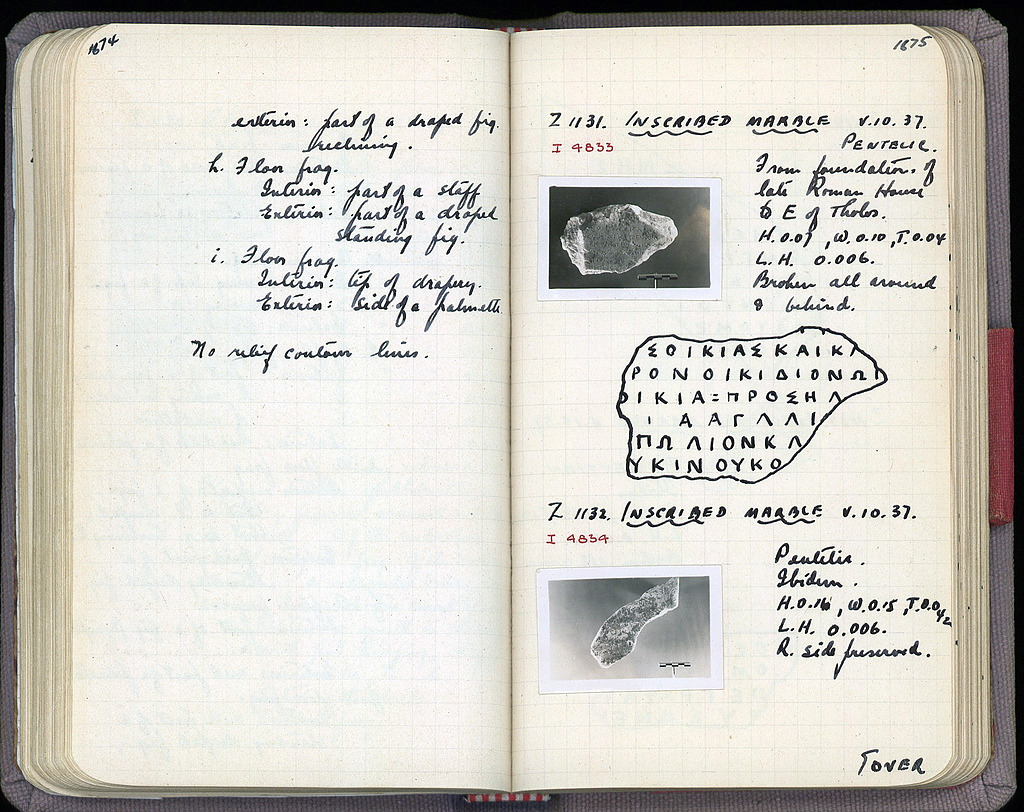 1874
exterior: part of a draped fig.
reclining.
h. Floor frag.
Interior: part of a staff
Exterior: part of a draped
standing fig.
i. Floor frag.
Interior: tip of drapery.
Exterior: side of a palmette
No relief contour lines.
1875
Z 1131. INSCRIBED MARBLE V.10.37.
I 4833
PENTELIC.
From foundations of
late Roman House
to E of Tholos.
H.0.07, W.0.10, T.0.04
L.H. 0.006.
Broken all around
& behind.
ΣΟΙΚΙΑΣΚΑΙΚ
ΡΟΝΟΙΚΙΔΙΟΝΩ
ΟΙΚΙΑΞΠΡΟΣΗΛ
Ι ΑΑΓΛΛΙ
ΠΩΛΙΟΝΚΛ
ΥΚΙΝΟΥΚΟ
Z 1132. INSCRIBED MARBLE V.10.37.
I 4834
Pentelic.
Ibidem.
H.0.16, W.0.15, T.0.042
L.H. 0.006.
R. side preserved.
OVER